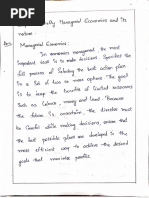 Managerial Economics and its
nature.
Ans. Managerial Economics:
In economics management the most
important task is to make decisions. Specifies the
full process of selecting the best action plan
in a set of two or more options. The goal
is to keep the benefits of limited resources
such as labour, money and land. Because
the future is uncertain, the director must
be careful while making decisions, ensure that
the best possible plans are developed in the
most efficient way to achieve the desired
goals that maximize profits.